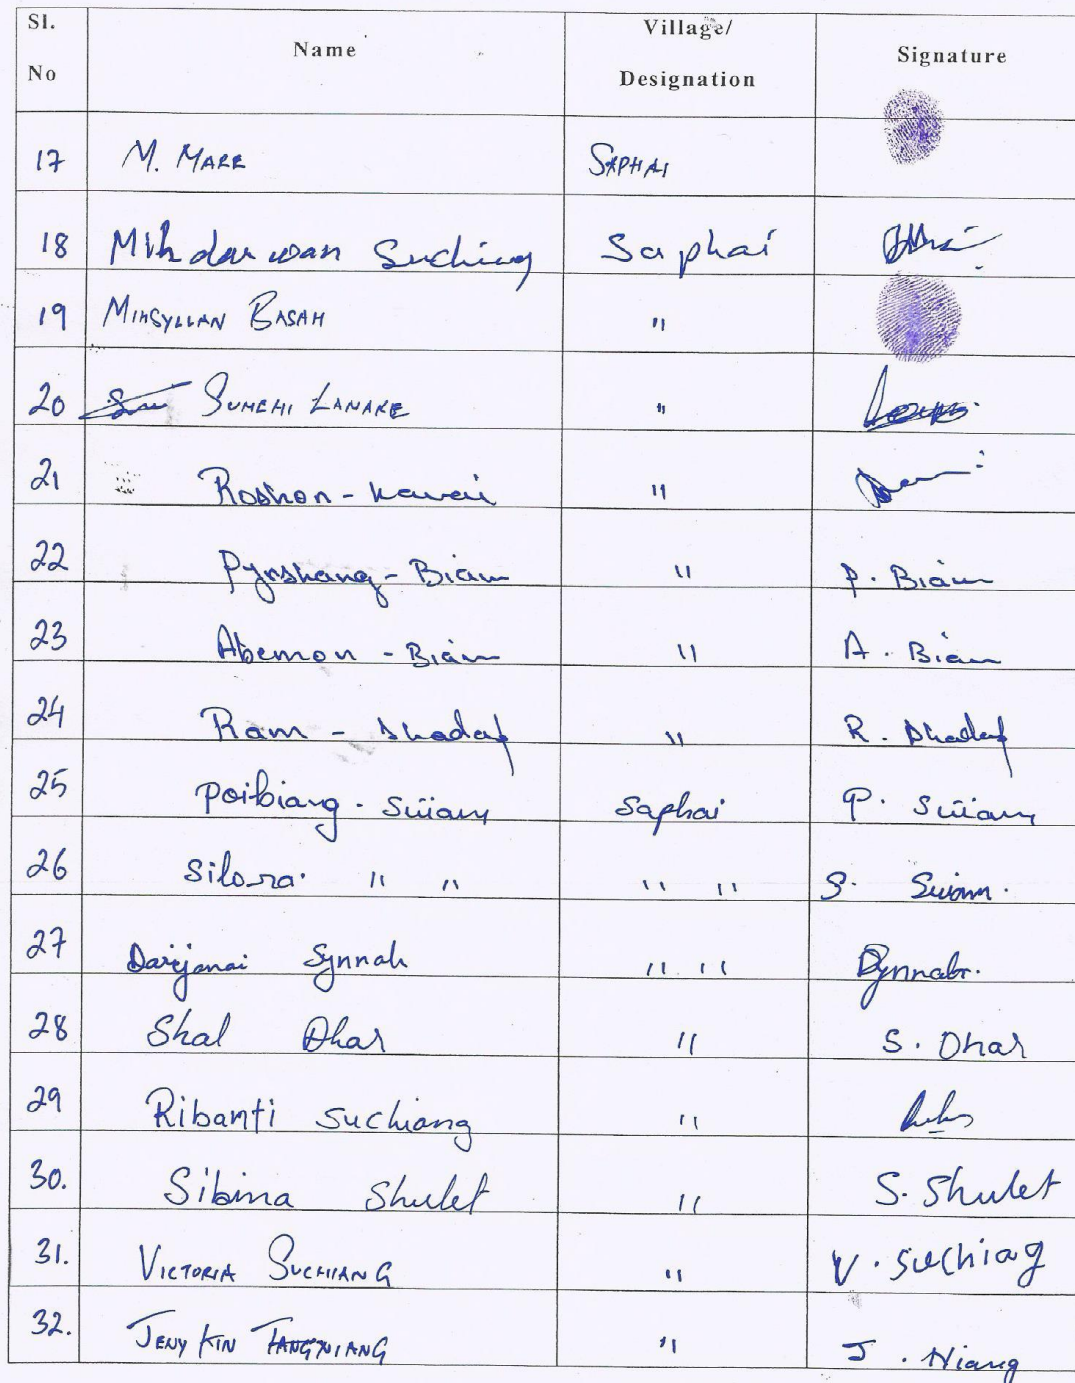 Sl. No Name Village/ Designation Signature
17 M. MARE SAPHAI
18 Mihdarwan Suching Saphai
19 MIHSYLLAN BASAH "
20 SUMCHI LANARE "
21 Roshon - "
22 Pynshang - Biam " P. Biam
23 Abemon - Biam " A. Biam
24 Ram - Shadap " R. Shadap
25 Poibiang - Siiam Saphai P. Siiam
26 Silora. " " " " S. Swam.
27 Darijanai Synnah " " Dynnah.
28 Shal Dhar " S. Dhar
29 Ribanti Suchiang "
30. Sibina Shulet " S. Shulet
31. VICTORIA SUCHIANG " V. Suchiag
32. JENY KIN TANGNIANG " J. Niang